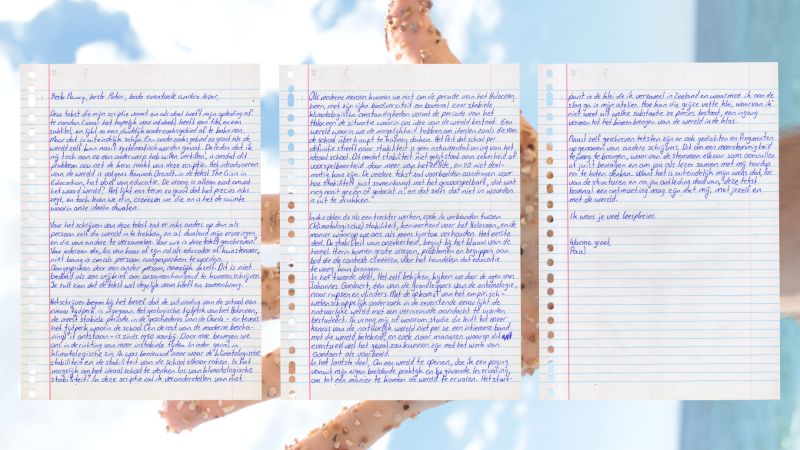 Beste Pauwy, beste Peter, beste eventuele andere lezer,
Deze tekst die mijn scriptie vormt en als doel heeft mijn opleiding af
te ronden (waat het tegelijk voor uitdaagt) heeft een titel en een
subtitel, en lijkt zo een duidelijk onderzoeksgebied af te bakenen.
Maar dat is uiteindelijk schijn. Een onderzoeksgebied zo groot als de
wereld zelf kan nooit systematisch worden gevat. De reden dat ik
mij toch aan zo een onderwerp heb willen vertillen, is omdat dit
probleem nou net de kern raakt van deze scriptie. Het introduceren
van de wereld is volgens Hannah Arendt, in de tekst The Crisis in
Education, het doel van educatie. De vraag is alleen wat omvat
het woord wereld? Het lijkt een term zo groot dat het precies niks
zegt, en toch leven we erin, creëren we die en is het de ruimte
waarin onze ideeën dwalen.
Voor het schrijven van deze tekst zat er niks anders op dan als
persoon zelf de wereld in te trekken, en al dwalend mijn ervaringen
en die van andere te verzamelen. Voor wie is deze tekst geschreven?
Voor iedereen die, los van haar of zijn rol als educator of kunstenaar,
niet bang is om als persoon aangesproken te worden.
Aangesproken door een ander persoon, namelijk ikzelf. Dit is niet
bedoeld als een vrijbrief om onsamenhangend te kunnen schrijven.
Je zult zien dat de tekst wel degelijk vorm heeft en samenhang.
Het schrijven begon bij het besef dat de uitvinding van de school een
nieuw tijdperk is ingegaan. Het geologische tijdperk van het Holoceen,
de meest stabiele periode in de geschiedenis van de Aarde – en tevens
het tijdperk waarin de school (en de rest van de moderne bescha-
ving) is ontstaan – is sinds 1950 voorbij. Door mee bewegen we
ons in de richting van meer instabiele tijden. In ieder geval in
klimatologische zin. Ik was benieuwd naar waar de klimatologische
stabiliteit en de stabiliteit van de school elkaar raken. Is het
mogelijk om het ideaal school te denken los van klimatologische
stabiliteit? In deze scriptie zal ik veronderstellen van niet.
Als moderne mensen kunnen we niet om de periode van het Holoceen
heen, met zijn rijke biodiversiteit en bovenal zeer stabiele
klimatologische omstandigheden werd de periode van het
Holoceen de situatie waarin ons idee van de wereld bestaat. Een
wereld waarin we de mogelijkheid hebben om ideeën zoals die van
de school überhaupt te kunnen denken. Het feit dat school ook
letterlijk streeft naar stabiliteit is een instrumentalisering van het
ideaal school. Dit omdat stabiliteit niet gelijkstaat aan zekerheid of
voorspelbaarheid door meer van hetzelfde, en zo niet doel-
matig kan zijn. De verdere tekst zal voorbeelden aandragen voor
hoe stabiliteit juist samenhangt met het onvoorspelbare, dat wat
nog nooit gezien of gedacht is, en dat zelfs dat niet in woorden
is uit te drukken.
In drie delen die als een trechter werken, zoek ik verbanden tussen
(klimatologische) stabiliteit, kenmerkend voor het Holoceen, en de
manier waarop we ons als mens hiertoe verhouden. Het eerste
deel, De stabiliteit van onzekerheid, begint bij het blauw van de
hemel. Hierin komen grote vragen, problemen en begrippen aan
bod die de context creëren, voor het handelen dat educatie
te weeg kan brengen.
In het tweede deel, Het zelf bekijken, kijken we door de ogen van
Johannes Goedaert, één van de grondleggers van de entomologie,
naar rupsen en vlinders. Met de opkomst van het empirisch-
wetenschappelijk onderzoek in de zeventiende eeuw lijkt de
natuurlijke wereld met een vernieuwde aandacht te worden
bestudeerd. Ik vraag mij af waarom studie die leidt tot meer
kennis van de natuurlijke wereld niet per se een intiemere band
met de wereld betekent, en zoek naar manieren waarop dit wél
eventueel wel het geval zou kunnen zijn met het werk van
Goedaert als voorbeeld.
In het laatste deel, Om een wereld te openen, doe ik een poging
vanuit mijn eigen beeldende praktijk en beginnende leservaring,
om tot een manier te komen de wereld te ervaren. Het start-
punt is de klei die ik verzamel in Zeeland en waarmee ik aan de
slag ga in mijn atelier. Hoe kan die grijze vette klei, waarvan ik
niet weet uit welke substantie ze precies bestaat, een ingang
vormen tot het binnen brengen van de wereld in de klas.
Naast zelf geschreven teksten zijn er ook gedichten en fragmenten
opgenomen van andere schrijvers. Dit om een meerstemmigheid
teweeg te brengen, waarvan de stemmen elkaar soms aanvullen
of juist bevragen en om jou als lezer samen met mij hierop
na te laten denken. Want het is uiteindelijk mijn wens dat, los
van de structuren en na jouw eindeling doordwaal, deze tekst
bovenal een ontmoeting mag zijn met mij, met jezelf en
met de wereld.
Ik wens je veel leesplezier.
Warme groet,
Paul